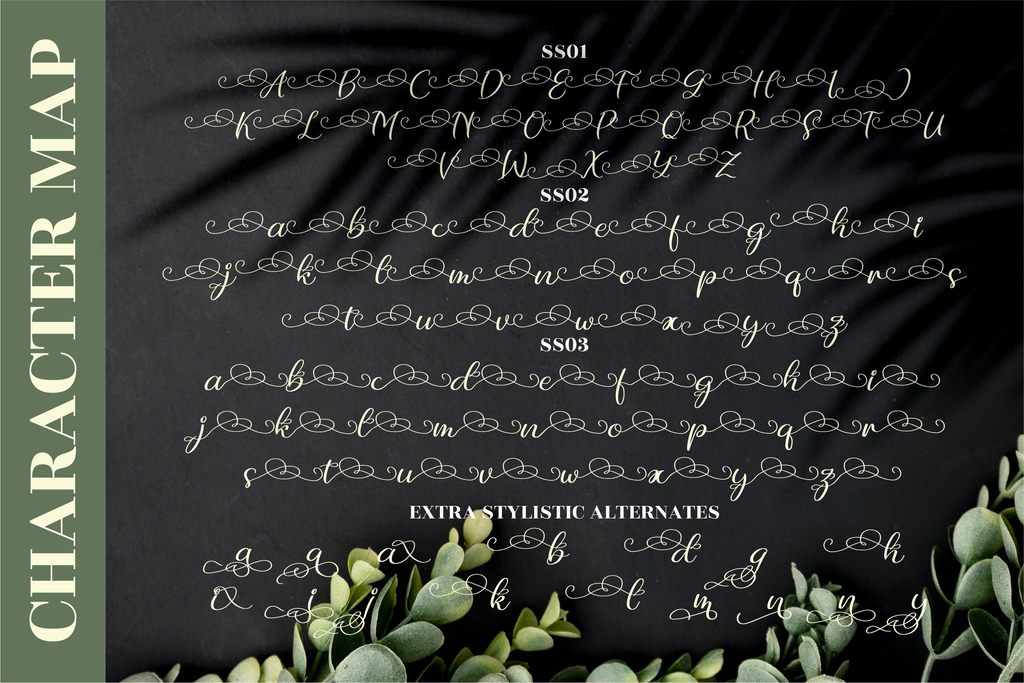 CHARACTER MAP
SS01
A B C D E F G H I J
K L M N O P Q R S T U
V W X Y Z
SS02
a b c d e f g h i
j k l m n o p q r s
t u v w x y z
SS03
a b c d e f g h i
j k l m n o p q r
s t u v w x y z
EXTRA STYLISTIC ALTERNATES
a a a b d g h
i j j k l m n n y